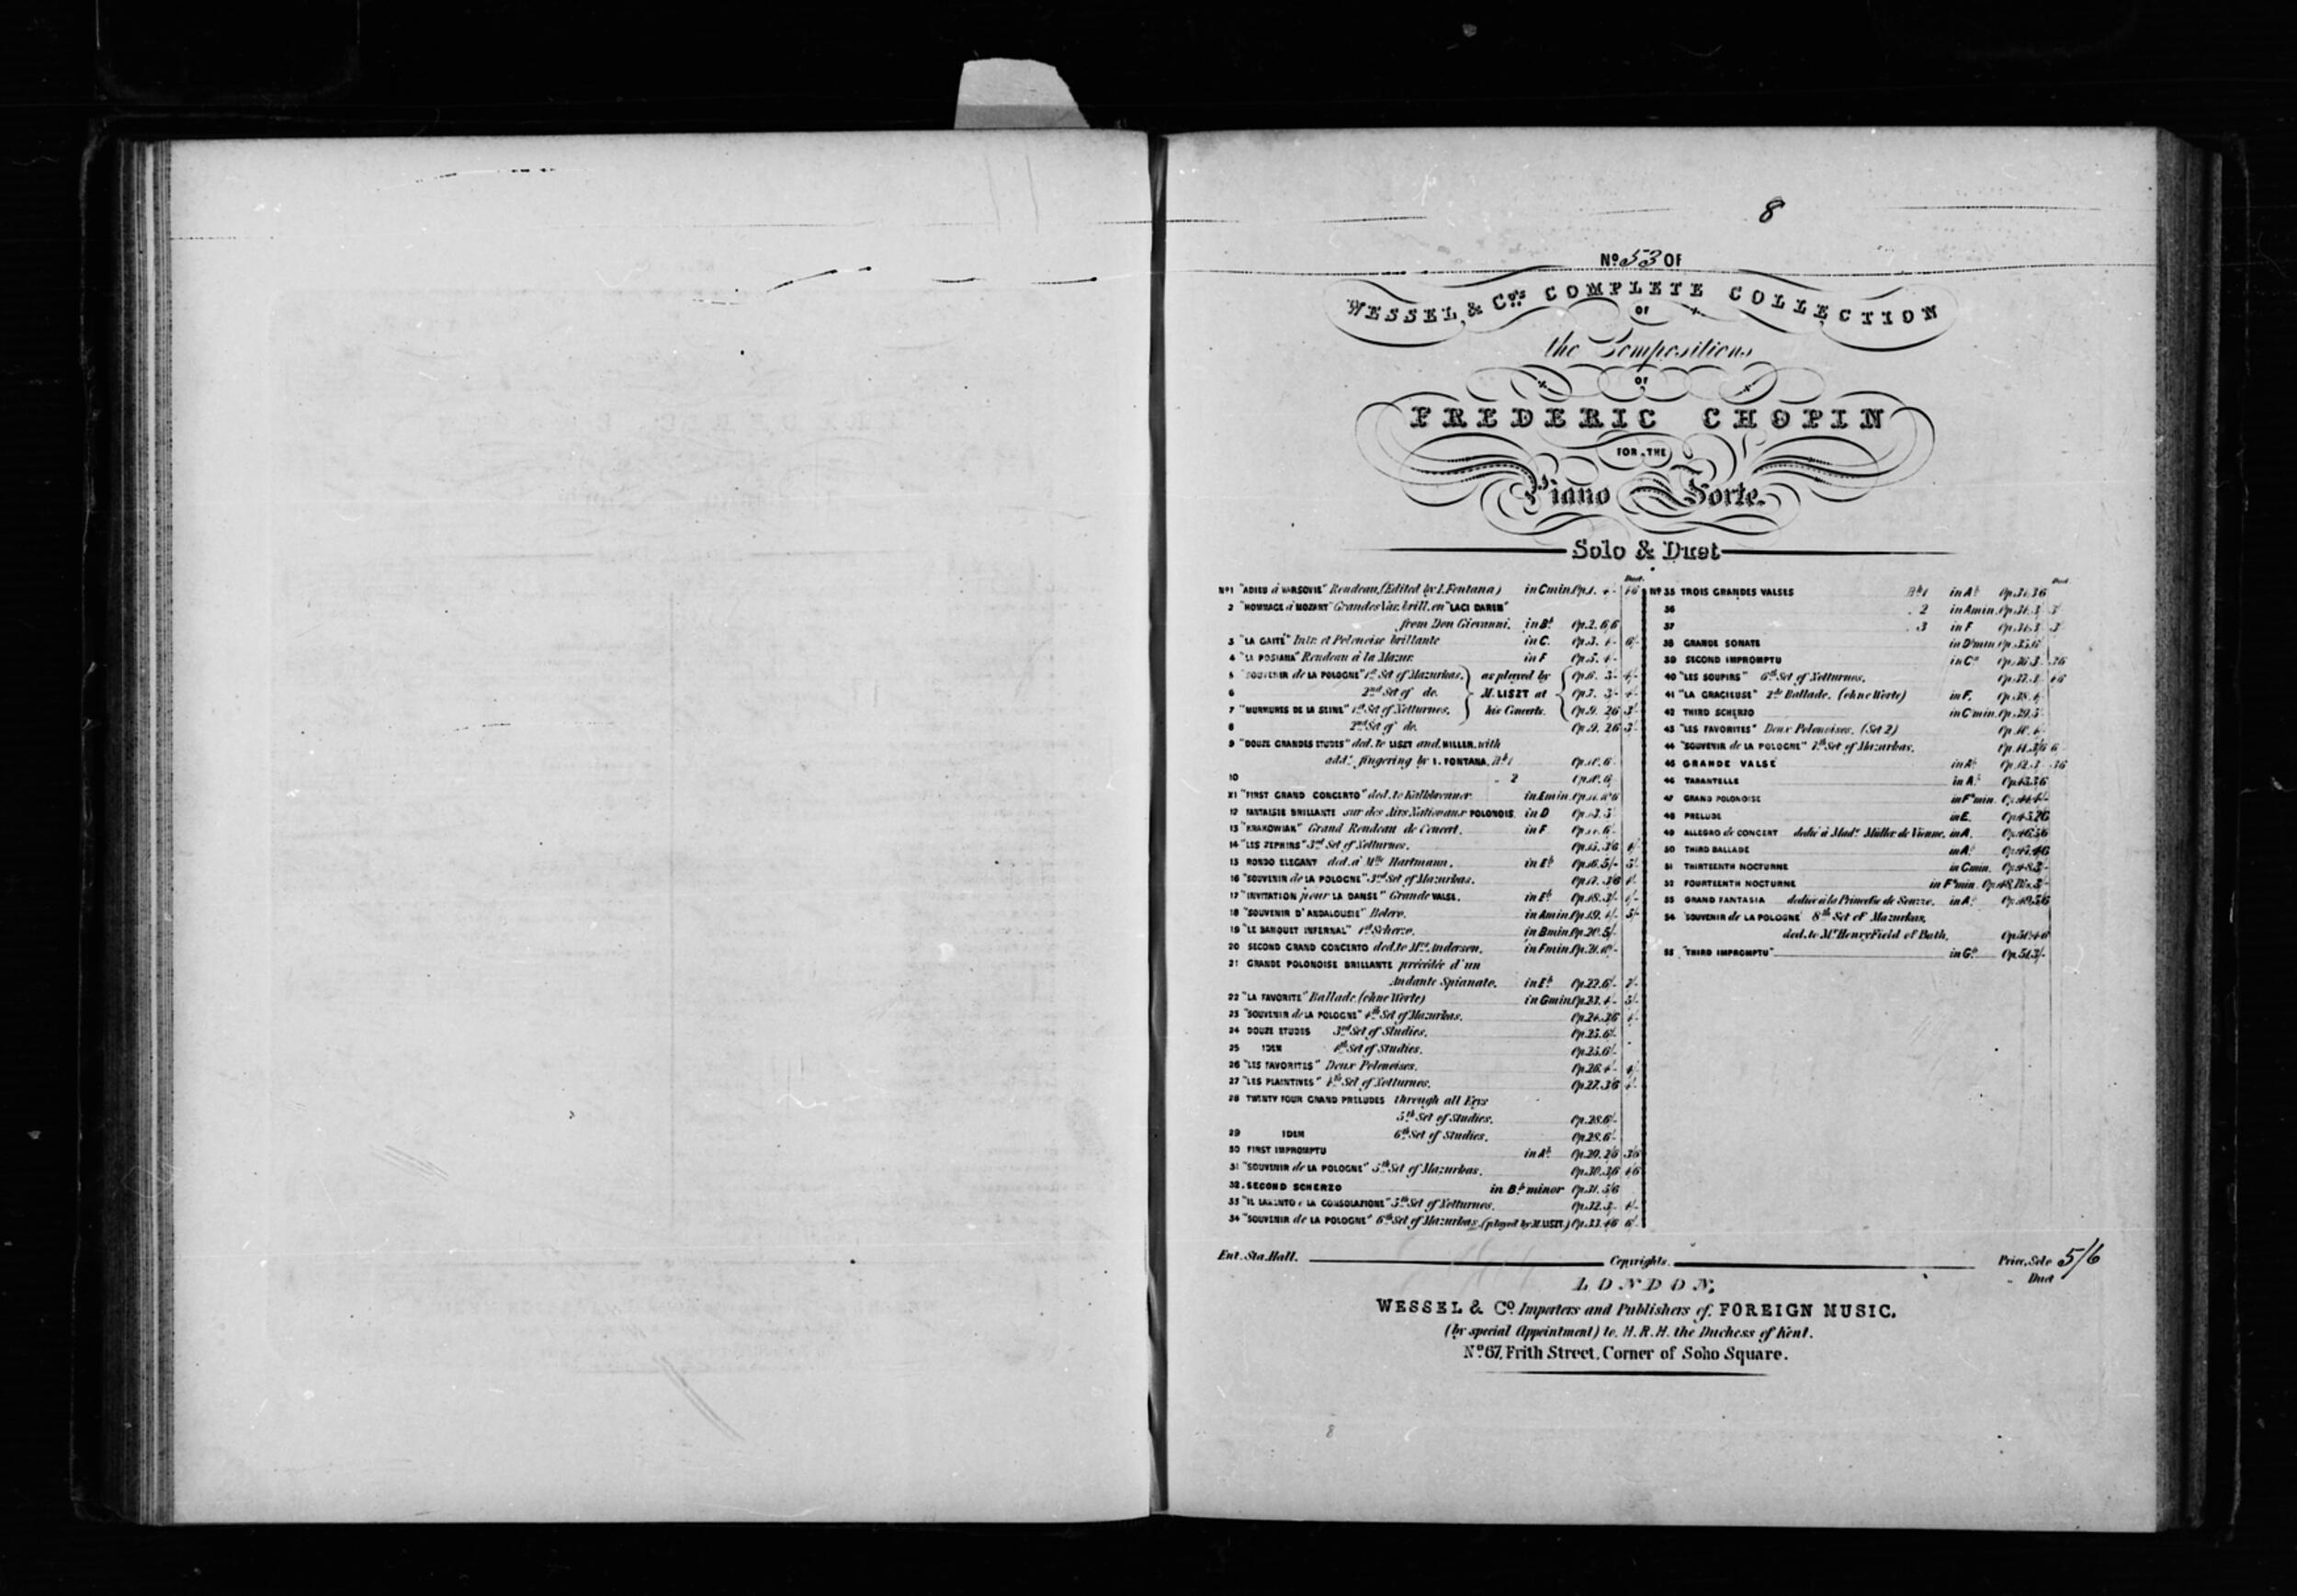 8
No. 53 OF
WESSEL & Co's COMPLETE COLLECTION
OF
the Compositions
OF
FREDERIC CHOPIN
FOR THE
Piano Forte.
Solo & Duet
Duet.
No 1 "ADIEU à VARSOVIE" Rondeau, (Edited by I. Fontana) in C min. Op. 1. 4/-
2 "HOMMAGE à MOZART" Grandes Var. brill. en "LACI DAREM"
from Don Giovanni. in B♭ Op. 2. 6/6
3 "LA GAITÉ" Intr. et Polonoise brillante in C. Op. 3. 4/- 6/-
4 "LA POSIANA" Rondeau à la Mazur. in F Op. 5. 4/-
5 "SOUVENIR de LA POLOGNE" 1st Set of Mazurkas. as played by Op. 6. 3/- 4/-
6 2nd Set of do. M. LISZT at Op. 7. 3/- 4/-
7 "MURMURES DE LA SEINE" 1st Set of Notturnos. his Concerts. Op. 9. 2/6 3/-
8 2nd Set of do. Op. 9. 2/6 3/-
9 "DOUZE GRANDES ETUDES" ded. to LISZT and HILLER, with
add. fingering by I. FONTANA. Bk 1 Op. 10. 6/-
10 " 2 Op. 10. 6/-
11 "FIRST GRAND CONCERTO" ded. to Kalkbrenner. in E min. Op. 11. 10/6
12 FANTAISIE BRILLANTE sur des Airs Nationaux POLONOIS. in D Op. 13. 5/-
13 "KRAKOWIAK" Grand Rondeau de Concert. in F Op. 14. 6/-
14 "LES ZEPHIRS" 3rd Set of Notturnos. Op. 15. 3/6 4/-
15 RONDO ELEGANT ded. à Mlle Hartmann. in E♭ Op. 16. 5/- 5/-
16 "SOUVENIR de LA POLOGNE" 3rd Set of Mazurkas. Op. 17. 3/6 4/-
17 "INVITATION pour LA DANSE" Grande VALSE. in E♭ Op. 18. 3/- 4/-
18 "SOUVENIR D'ANDALOUSIE" Bolero. in A min. Op. 19. 4/- 5/-
19 "LE BANQUET INFERNAL" 1st Scherzo. in B min. Op. 20. 5/-
20 SECOND GRAND CONCERTO ded. to Mrs Anderson. in F min. Op. 21.
21 GRANDE POLONOISE BRILLANTE précédée d'un
Andante Spianato. in E♭ Op. 22. 6/-
22 "LA FAVORITE" Ballade (ohne Worte) in G min. Op. 23. 4/- 5/-
23 "SOUVENIR de LA POLOGNE" 4th Set of Mazurkas. Op. 24. 3/6 4/-
24 DOUZE ETUDES 3rd Set of Studies. Op. 25. 6/-
25 IDEM 4th Set of Studies. Op. 25. 6/-
26 "LES FAVORITES" Deux Polonoises. Op. 26. 4/- 4/-
27 "LES PLAINTIVES" 4th Set of Notturnos. Op. 27. 3/6 4/-
28 TWENTY FOUR GRAND PRELUDES through all Keys
5th Set of Studies. Op. 28. 6/-
29 IDEM 6th Set of Studies. Op. 28. 6/-
30 FIRST IMPROMPTU in A♭ Op. 29. 2/6 3/6
31 "SOUVENIR de LA POLOGNE" 5th Set of Mazurkas. Op. 30. 3/6 4/6
32. SECOND SCHERZO in B♭ minor Op. 31. 5/6
33 "IL LAMENTO e LA CONSOLAZIONE" 5th Set of Notturnos. Op. 32. 3/- 4/-
34 "SOUVENIR de LA POLOGNE" 6th Set of Mazurkas (played by M. LISZT.) Op. 33. 4/6 6/-
Duet
No 35 TROIS GRANDES VALSES No 1 in A♭ Op. 34. 3/6
36 . 2 in A min. Op. 34. 3/ 3/-
37 . 3 in F Op. 34. 3/ 3/-
38 GRANDE SONATE Op. 35. 6/
39 SECOND IMPROMPTU Op. 36. 3/- 3/6
40 "LES SOUPIRS" 6th Set of Notturnos. Op. 37. 4/6
41 "LA GRACIEUSE" 2de Ballade. (ohne Worte) in F. Op. 38. 4/-
42 THIRD SCHERZO in C min. Op. 39. 5/-
43 "LES FAVORITES" Deux Polonoises. (Set 2) Op. 40. 4/-
44 "SOUVENIR de LA POLOGNE" 7th Set of Mazurkas. Op. 41. 3/6 6
45 GRANDE VALSE in A♭ Op. 42. 3/- 3/6
46 TARANTELLE in A♭ Op. 43. 3/6
47 GRAND POLONOISE in F# min. Op. 44. 4/-
48 PRELUDE in E. Op. 45. 2/6
49 ALLEGRO de CONCERT dedié à Madle Müller de Vienne. in A. Op. 46. 5/6
50 THIRD BALLADE in A♭ Op. 47. 4/6
51 THIRTEENTH NOCTURNE in C min. Op. 48. 3/-
52 FOURTEENTH NOCTURNE in F# min. Op. 48. Bis. 3/-
53 GRAND FANTASIA dediée à la Princesse de Souzzo. in A♭ Op. 49. 5/6
54 "SOUVENIR de LA POLOGNE" 8th Set of Mazurkas,
ded. to Mr Henry Field of Bath. Op. 50. 4/6
55 "THIRD IMPROMPTU" in G♭ Op. 51. 3/-
Ent. Sta. Hall. Copyrights. Price, Solo 5/6
" Duet
LONDON,
WESSEL & Co. Importers and Publishers of FOREIGN MUSIC.
(by special Appointment) to H.R.H. the Duchess of Kent.
No. 67, Frith Street, Corner of Soho Square.
8